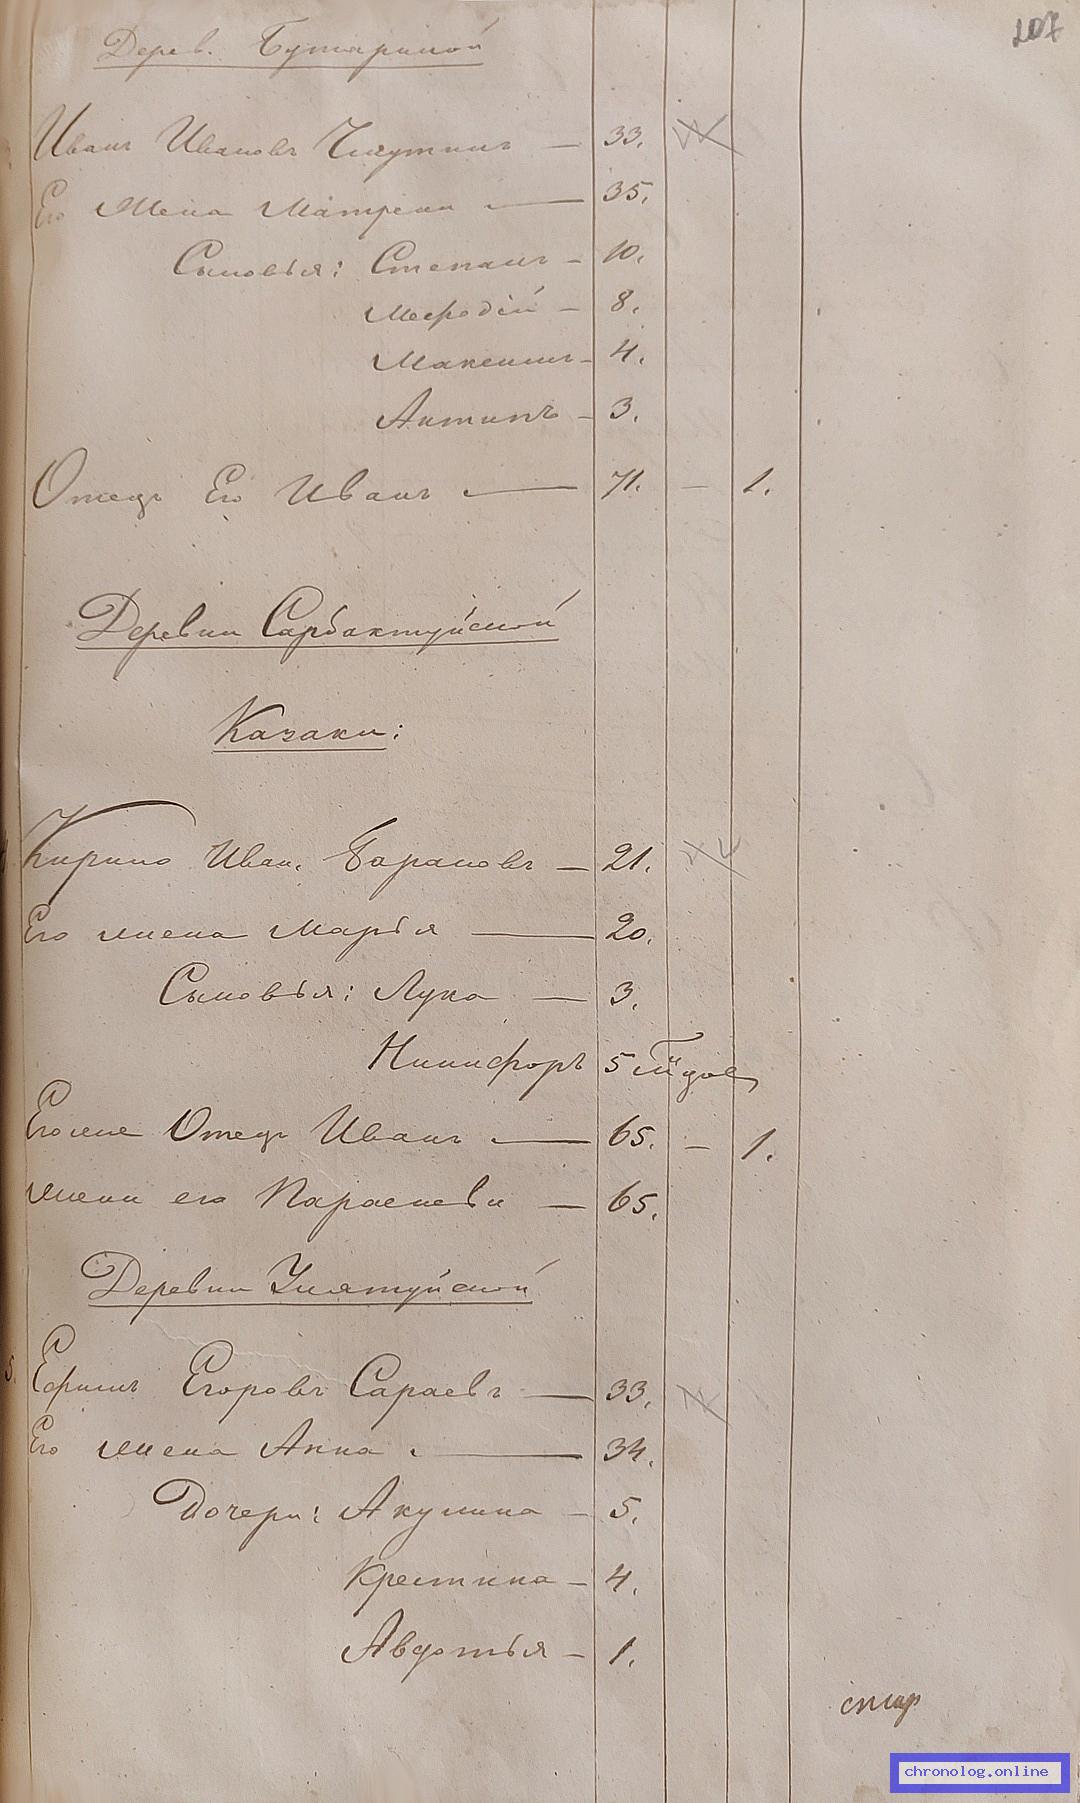 207
Дерев. Бутариной
Иванъ Ивановъ 33.
Его жена Матрена 35.
Сыновья: Степанъ - 10.
Меѳодій - 8.
Максимъ - 4.
Антипъ - 3.
Отецъ Его Иванъ 71. - 1.
Деревни Сарбактуйской
Казаки:
Кирило Иван. Барановъ - 21.
Его жена Марья 20.
Сыновья: Лука - 3.
Никифоръ 5
Его же Отецъ Иванъ 65. - 1.
жена его Параскева - 65.
Деревни Унятуйской
5. Ефимъ Егоровъ Сараевъ 33.
Его жена Анна 34.
Дочери: Акулина - 5.
Крестина - 4.
Авдотья - 1.
chronolog.online